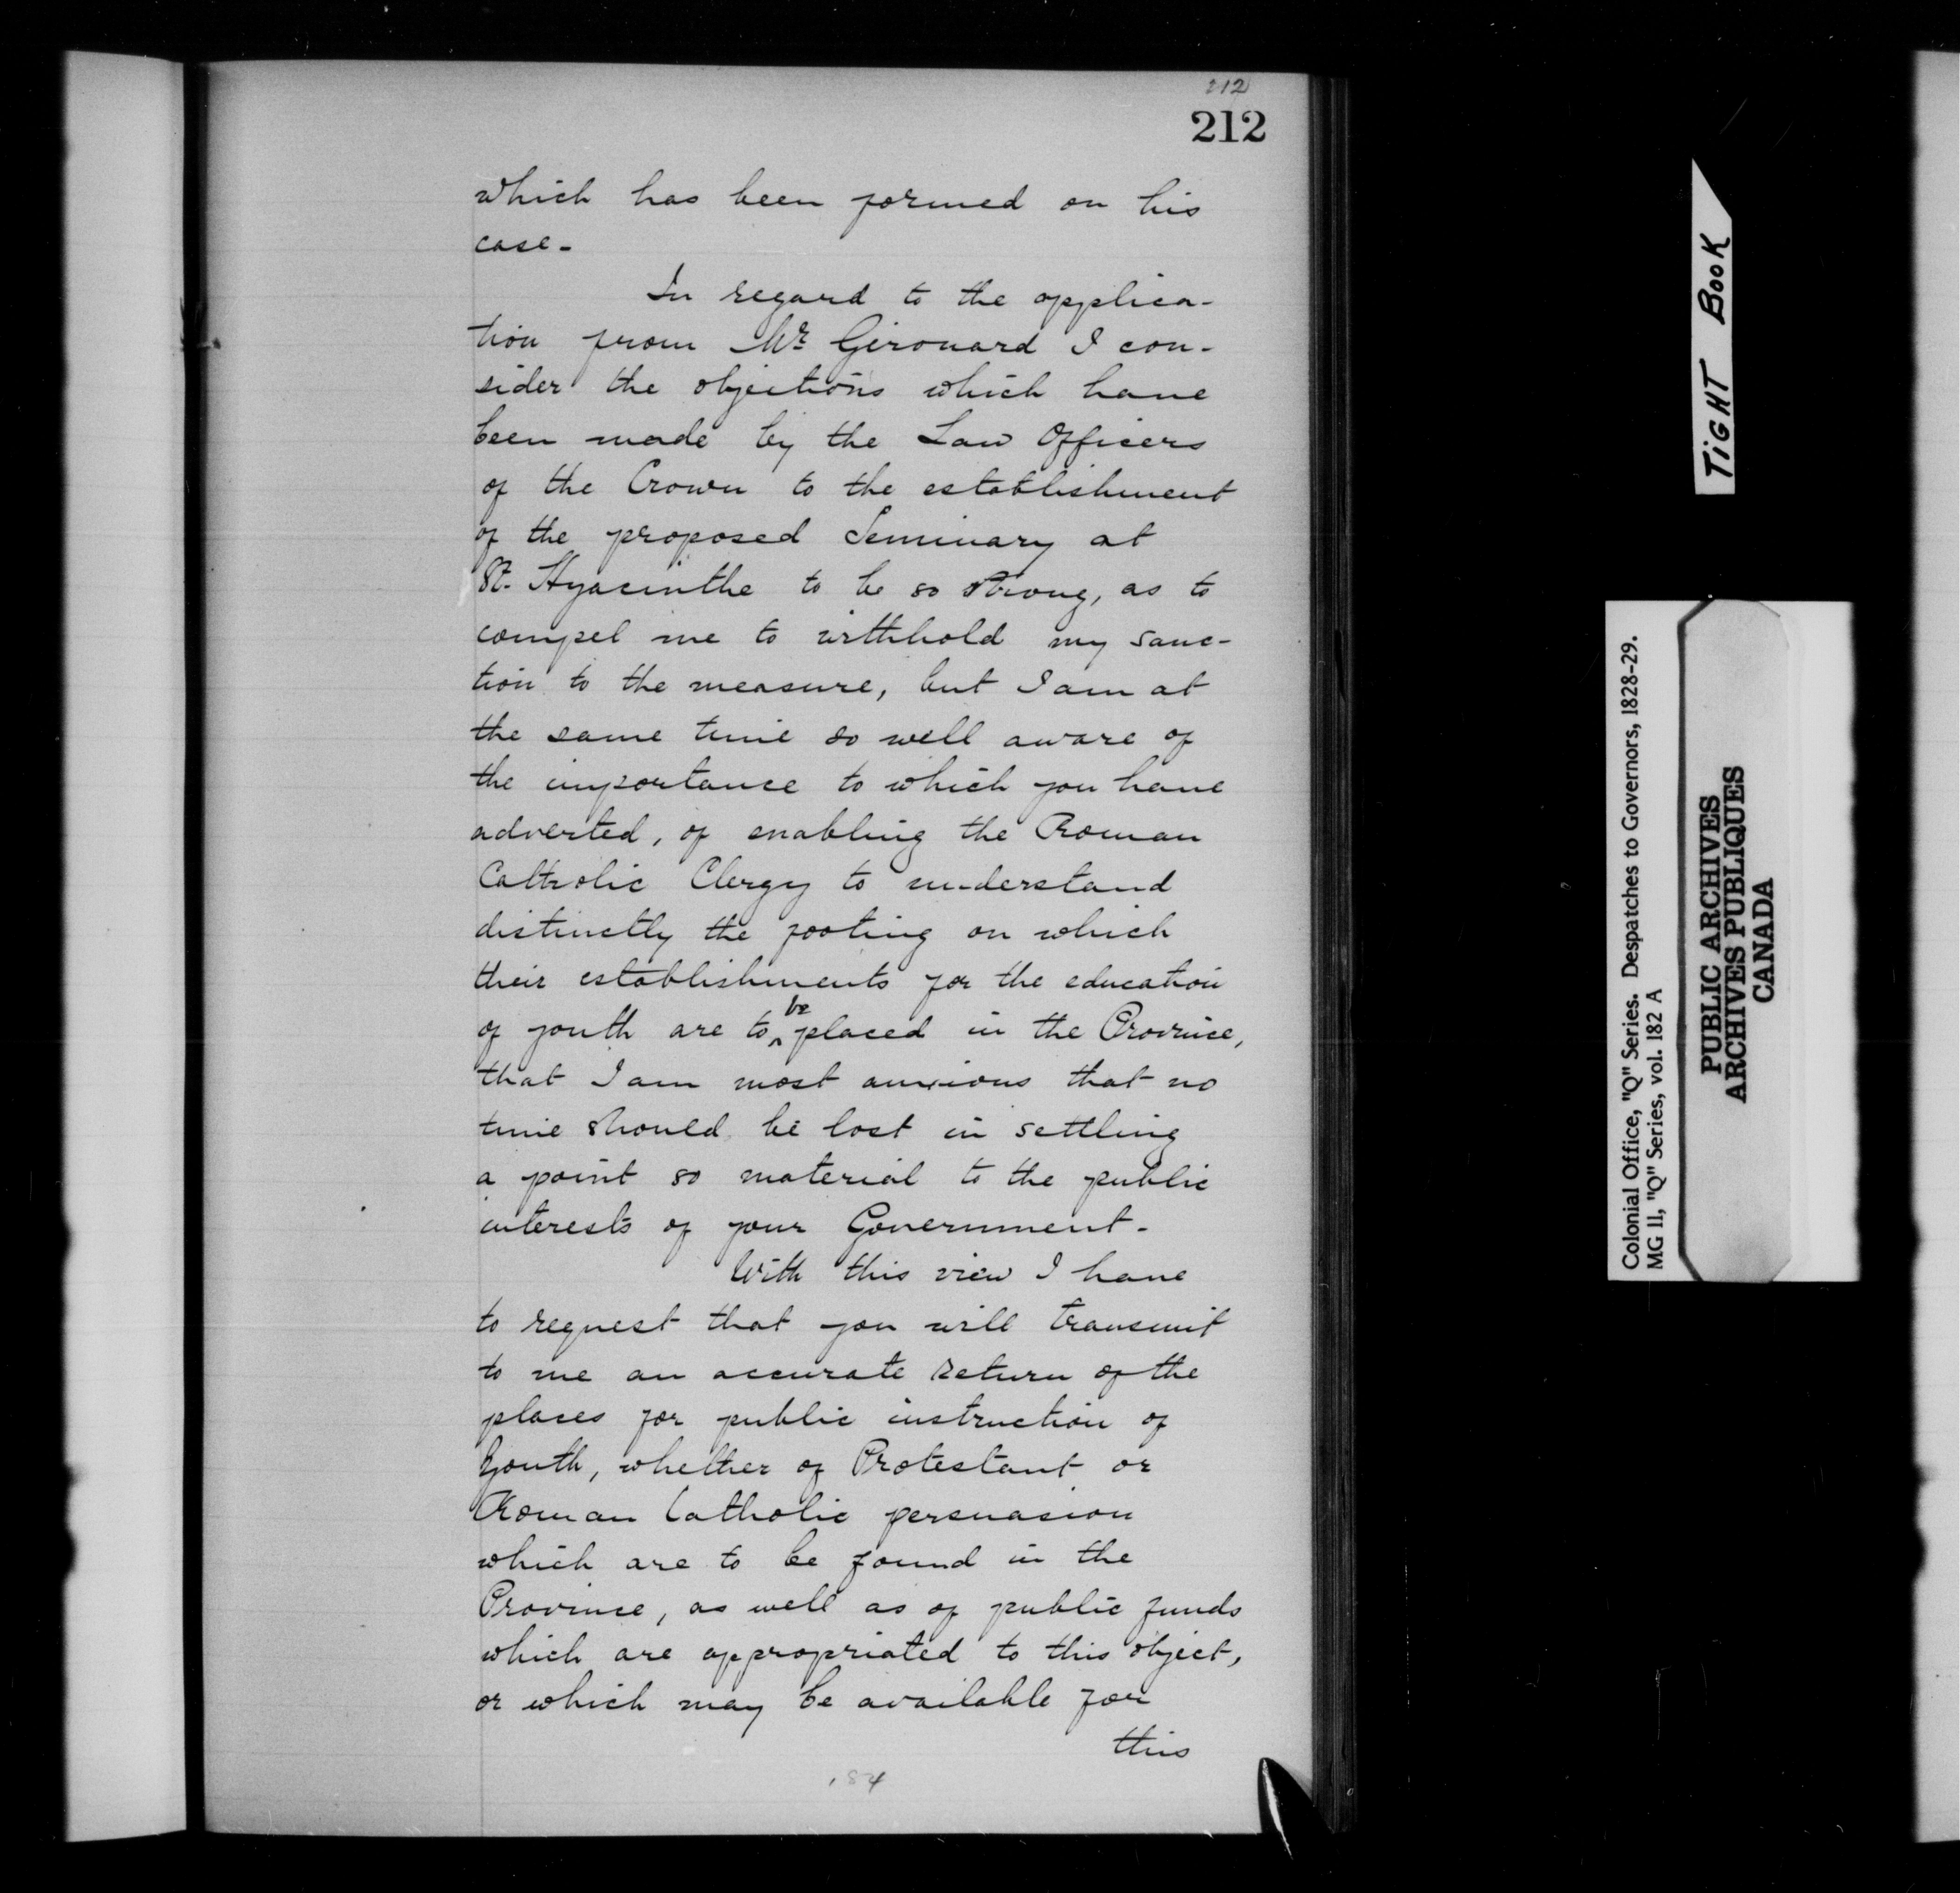 212
212
which has been formed on his
case-
In regard to the applica-
tion from Mr Girouard I con-
sider the objections which have
been made by the Law Officers
of the Crown to the establishment
of the proposed Seminary at
St. Hyacinthe to be so strong, as to
compel me to withhold my sanc-
tion to the measure, but I am at
the same time so well aware of
the importance to which you have
adverted, of enabling the Roman
Catholic Clergy to understand
distinctly the footing on which
their establishments for the education
of youth are to be placed in the Province,
that I am most anxious that no
time should be lost in settling
a point so material to the public
interests of your Government-
With this view I have
to request that you will transmit
to me an accurate return of the
places for public instruction of
Youth, whether of Protestant or
Roman Catholic persuasion
which are to be found in the
Province, as well as of public funds
which are appropriated to this object,
or which may be available for
this
184
TIGHT BOOK
Colonial Office, "Q" Series. Despatches to Governors, 1828-29.
MG 11, "Q" Series, vol. 182 A
PUBLIC ARCHIVES
ARCHIVES PUBLIQUES
CANADA